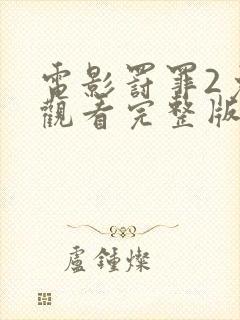 電影罰罪2
觀看完整版
盧鍾燦